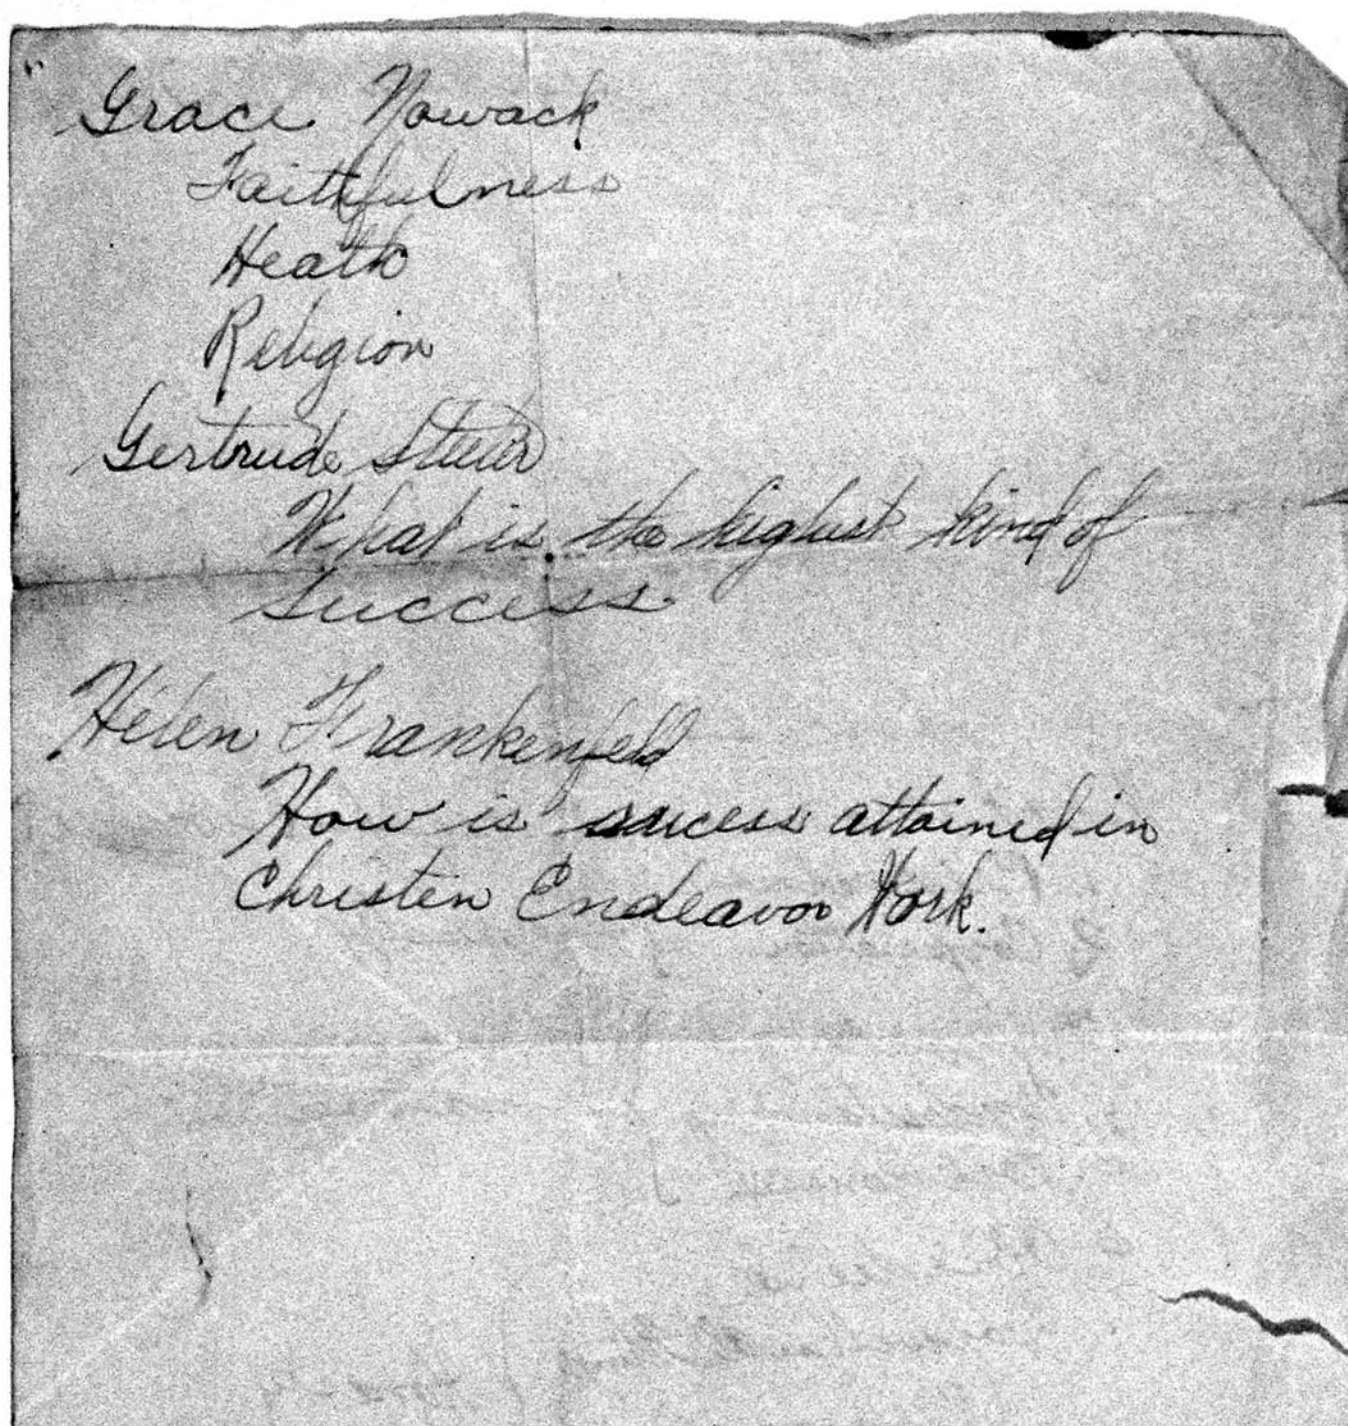 Grace Nowack
Faithfulness
Heath
Religion
Gertrude
What is the highest kind of
Success
Helen Frankenfeld
How is sucess attained in
Christen Endeavor Work.